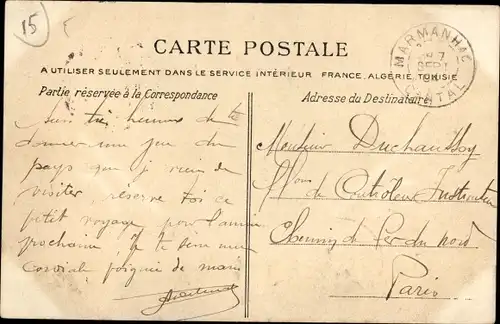 15
CARTE POSTALE
A UTILISER SEULEMENT DANS LE SERVICE INTÉRIEUR FRANCE, ALGÉRIE, TUNISIE
Partie réservée à la Correspondance
Adresse du Destinataire
MARMANHAC
7
SEPT
CANTAL
Suis très heureux de te
donner une
pays que je viens de
visiter, réserve toi ce
petit voyage pour l'année
prochaine, Je te serre une
cordiale poignée de main
Monsieur Duchaussoy
Contrôleur Instructeur
Chemin de Fer du Nord
Paris